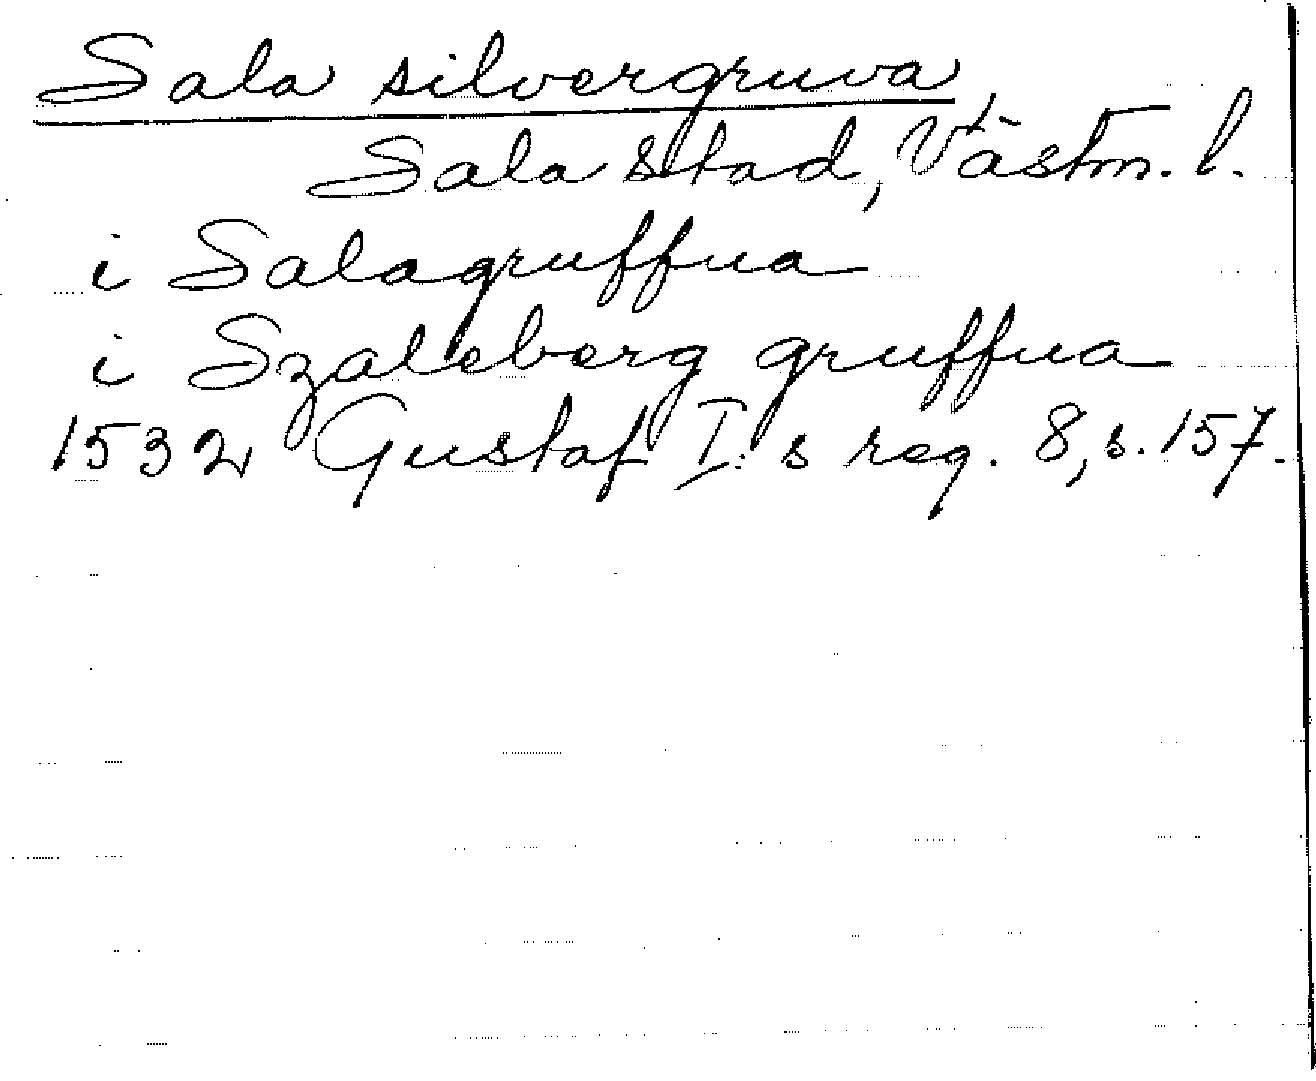 Sala silvergruva
Sala stad, Västm. l.
i Salagruffua
i Szaleberg gruffua
1532 Gustaf I:s reg. 8, s. 157.